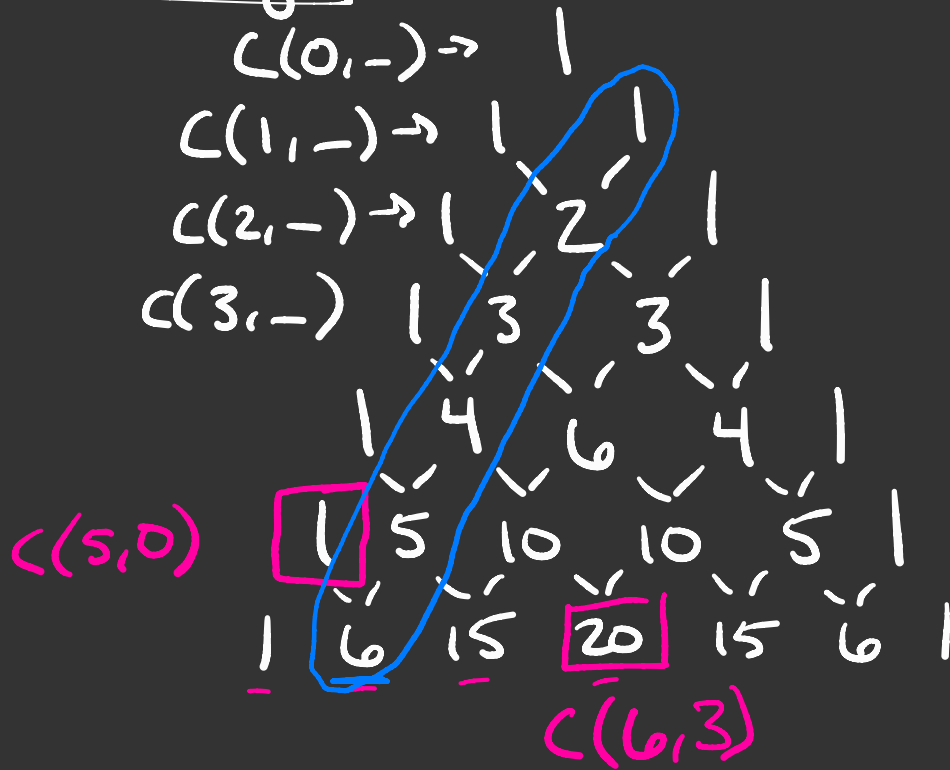 C(0,_)→ 1
C(1,_)→ 1 1
C(2,_)→ 1 2 1
C(3,_) 1 3 3 1
1 4 6 4 1
C(5,0) 1 5 10 10 5 1
1 6 15 20 15 6 1
C(6,3)